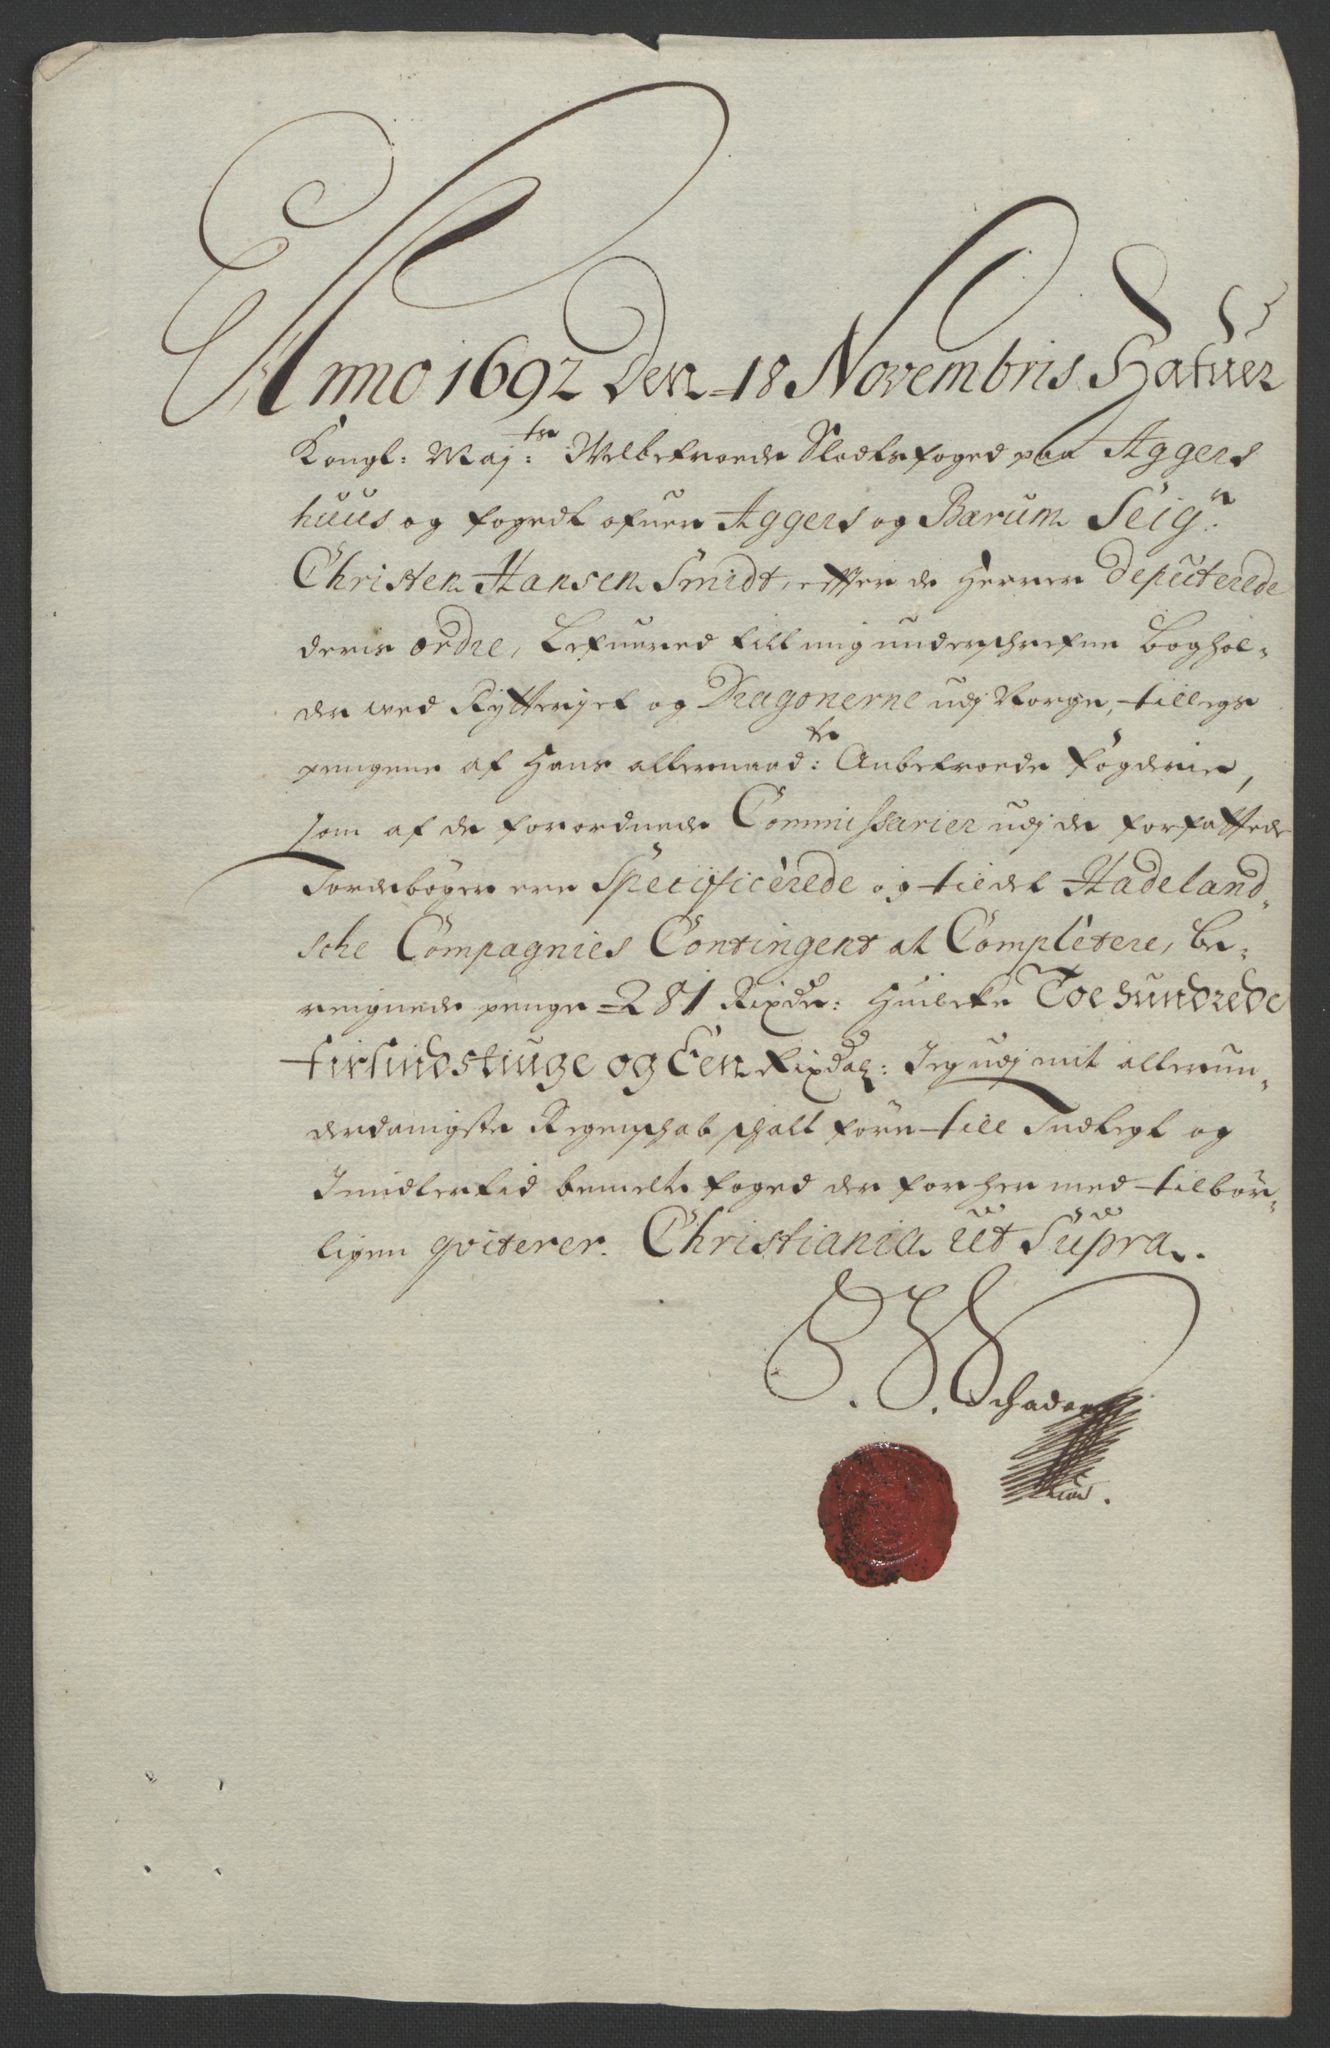 Anno 1692 Den 18 Novembris Hafuer
Kongl: Maj:ts Velbetroede Slodtsfoged paa Aggers
huus og fogedt ofuer Aggers og Bærum Seigr:
Christen Hansen Smidt, effter de Herrer Deputerede
deris ordre, Lefuered till mig underschrefne boghol=
der ved Rytteriet og Dragonerne udj Norge, tillegs
pengene af Hans allernaad:te Anbetroede fögderier,
som af de forordnede Commissarier udj de forfattede
Jordebøger ere Specificerede og til det Hadeland=
sche Compagnies Contingent at Completere, be=
reignede penge 281 Rixdr: Huilcke Toe hundrede
firsindstiuge og Een Rixdal: Jeg udj mit allerun=
derdanigste Regenschab schall føre till Indtegt og
Imidlertid bemelte foged der for her med tilbør=
ligen qviterer. Christiania ut Supra.
Schade